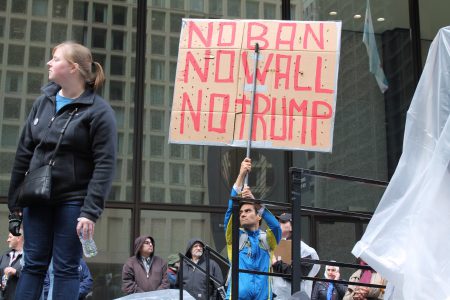 NO BAN
NO WALL
NO TRUMP